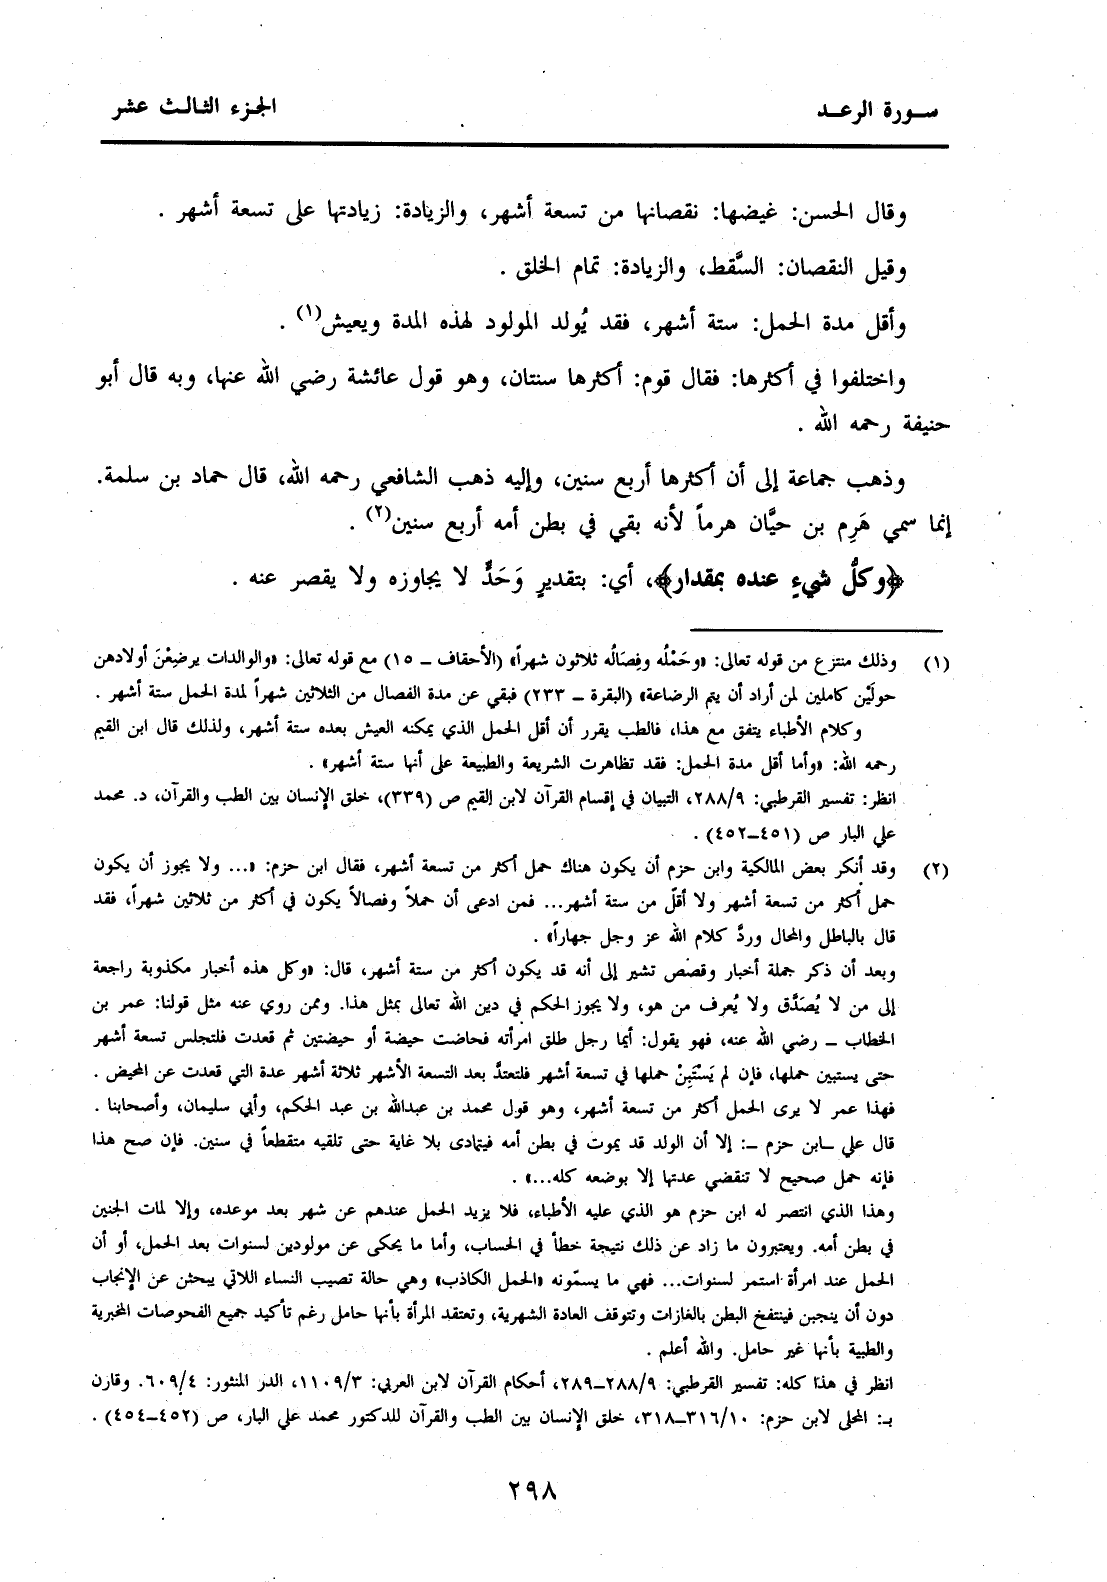 سورة الرعد
الجزء الثالث عشر
وقال الحسن: غيضها: نقصانها من تسعة أشهر، والزيادة: زيادتها على تسعة أشهر .
وقيل النقصان: السَّقط، والزيادة: تمام الخلق .
وأقل مدة الحمل: ستة أشهر، فقد يُولد المولود لهذه المدة ويعيش(١) .
واختلفوا في أكثرها: فقال قوم: أكثرها سنتان، وهو قول عائشة رضي الله عنها، وبه قال أبو
حنيفة رحمه الله .
وذهب جماعة إلى أن أكثرها أربع سنين، وإليه ذهب الشافعي رحمه الله، قال حماد بن سلمة.
إنما سمي هَرِم بن حيَّان هرماً لأنه بقي في بطن أمه أربع سنين(٢) .
﴿وكلُّ شيءٍ عنده بمقدار﴾، أي: بتقديرٍ وَحَدٍّ لا يجاوزه ولا يقصر عنه .
(١) وذلك منتزع من قوله تعالى: «وحَمْلُه وفِصَالُه ثلاثون شهراً» (الأحقاف ــ ١٥) مع قوله تعالى: «والوالدات يرضِعْنَ أولادهن
حولَيْن كاملين لمن أراد أن يتم الرضاعة» (البقرة ــ ٢٣٣) فبقي عن مدة الفصال من الثلاثين شهراً لمدة الحمل ستة أشهر .
وكلام الأطباء يتفق مع هذا، فالطب يقرر أن أقل الحمل الذي يمكنه العيش بعده ستة أشهر، ولذلك قال ابن القيم
رحمه الله: «وأما أقل مدة الحمل: فقد تظاهرت الشريعة والطبيعة على أنها ستة أشهر» .
انظر: تفسير القرطبي: ٢٨٨/٩، التبيان في إقسام القرآن لابن القيم ص (٣٣٩)، خلق الإنسان بين الطب والقرآن، د. محمد
علي البار ص (٤٥١ــ٤٥٢) .
(٢) وقد أنكر بعض المالكية وابن حزم أن يكون هناك حمل أكثر من تسعة أشهر، فقال ابن حزم: «... ولا يجوز أن يكون
حمل أكثر من تسعة أشهر ولا أقلّ من ستة أشهر... فمن ادعى أن حملاً وفصالاً يكون في أكثر من ثلاثين شهراً، فقد
قال بالباطل والمحال وردَّ كلام الله عز وجل جهاراً» .
وبعد أن ذكر جملة أخبار وقصص تشير إلى أنه قد يكون أكثر من ستة أشهر، قال: «وكل هذه أخبار مكذوبة راجعة
إلى من لا يُصَدَّق ولا يُعرف من هو، ولا يجوز الحكم في دين الله تعالى بمثل هذا. وممن روي عنه مثل قولنا: عمر بن
الخطاب ــ رضي الله عنه، فهو يقول: أيما رجل طلق امرأته فحاضت حيضة أو حيضتين ثم قعدت فلتجلس تسعة أشهر
حتى يستبين حملها، فإن لم يَسْتَبِنْ حملها في تسعة أشهر فلتعتدَّ بعد التسعة الأشهر ثلاثة أشهر عدة التي قعدت عن المحيض .
فهذا عمر لا يرى الحمل أكثر من تسعة أشهر، وهو قول محمد بن عبدالله بن عبد الحكم، وأبي سليمان، وأصحابنا .
قال علي ــابن حزم ــ: إلا أن الولد قد يموت في بطن أمه فيتمادى بلا غاية حتى تلقيه متقطعاً في سنين. فإن صح هذا
فإنه حمل صحيح لا تنقضي عدتها إلا بوضعه كله...» .
وهذا الذي انتصر له ابن حزم هو الذي عليه الأطباء، فلا يزيد الحمل عندهم عن شهر بعد موعده، وإلا لمات الجنين
في بطن أمه. ويعتبرون ما زاد عن ذلك نتيجة خطأ في الحساب، وأما ما يحكى عن مولودين لسنوات بعد الحمل، أو أن
الحمل عند امرأة استمر لسنوات... فهي ما يسمّونه «الحمل الكاذب» وهي حالة تصيب النساء اللاتي يبحثن عن الإنجاب
دون أن ينجبن فينتفخ البطن بالغازات وتتوقف العادة الشهرية، وتعتقد المرأة بأنها حامل رغم تأكيد جميع الفحوصات المخبرية
والطبية بأنها غير حامل. والله أعلم .
انظر في هذا كله: تفسير القرطبي: ٢٨٨/٩ــ٢٨٩، أحكام القرآن لابن العربي: ١١٠٩/٣، الدر المنثور: ٦٠٩/٤. وقارن
بـ: المحلى لابن حزم: ٣١٦/١٠ــ٣١٨، خلق الإنسان بين الطب والقرآن للدكتور محمد علي البار، ص (٤٥٢ــ٤٥٤) .
٢٩٨